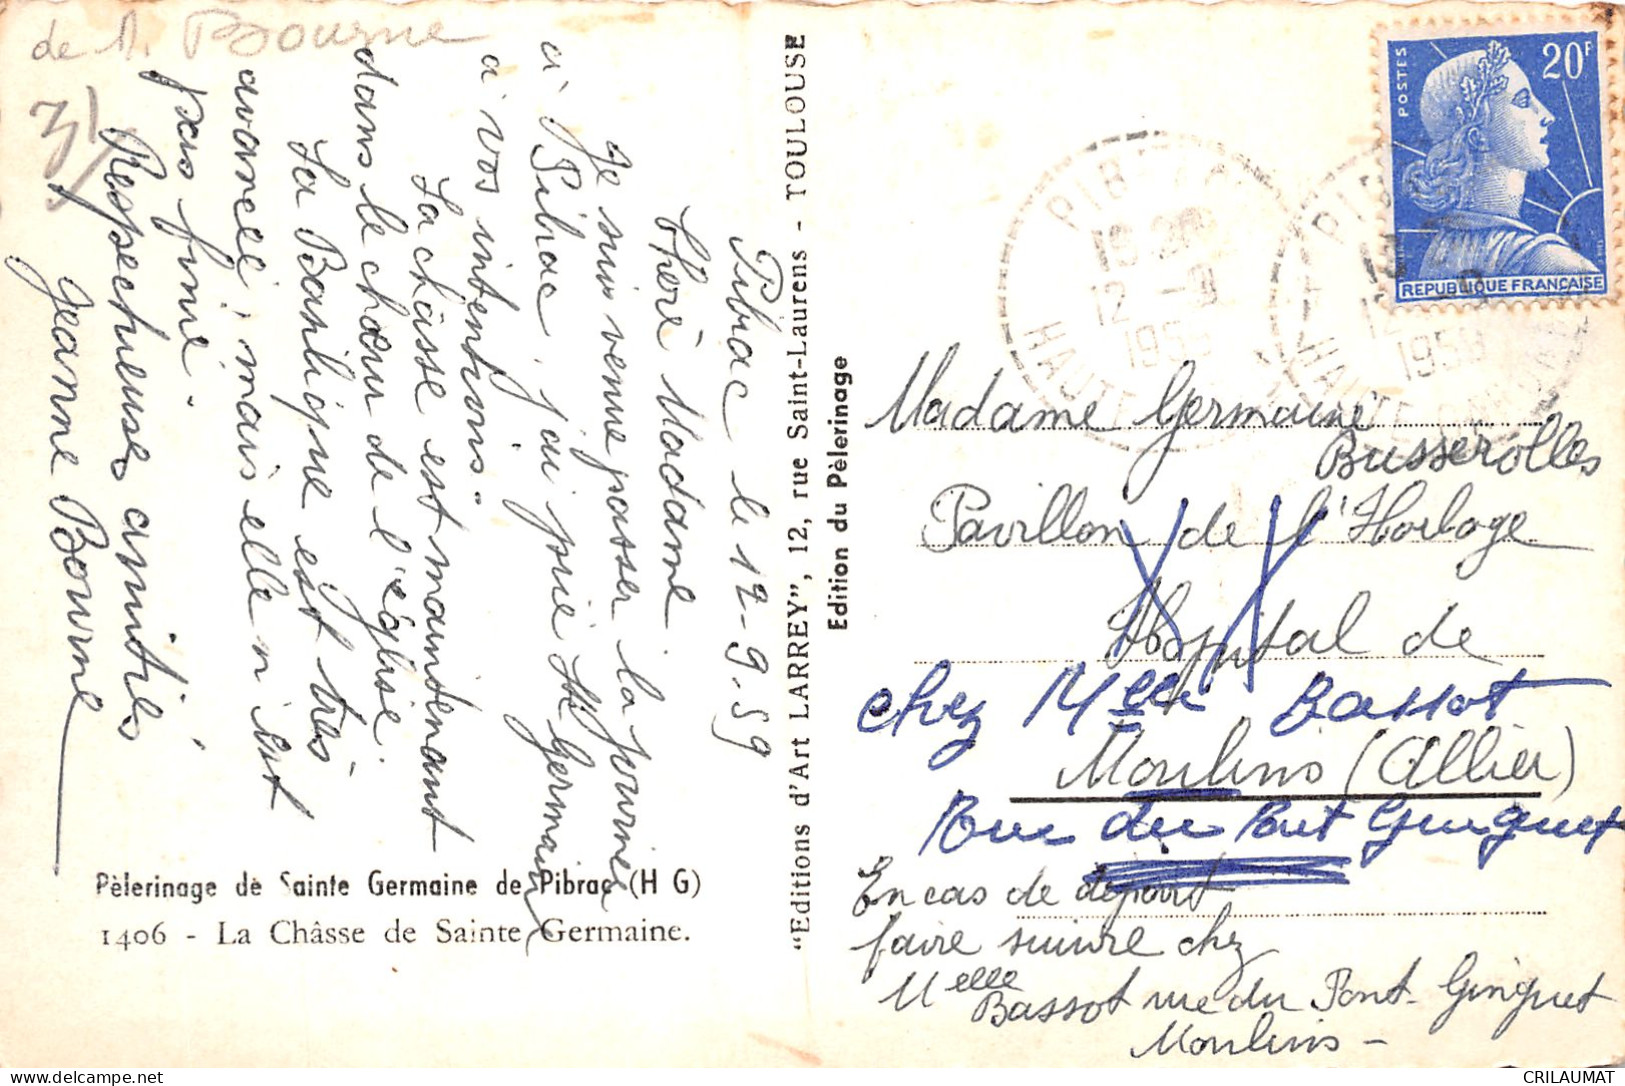 de M. Bourne
Pibrac le 12-9-59
Chère Madame
Je suis venue passer la journée
à Pibrac, j'ai prié Ste Germaine
à vos intentions.
La châsse est maintenant
dans le chœur de l'église.
La Basilique est très
avancée, mais elle n'est
pas finie.
Respectueuses amitiés
Jeanne Bourne
Pèlerinage de Sainte Germaine de Pibrac (H G)
1406 - La Châsse de Sainte Germaine.
"Editions d'Art LARREY", 12, rue Saint-Laurens - TOULOUSE
Edition du Pèlerinage
POSTES
20F
REPUBLIQUE FRANÇAISE
PIBRAC
12 -9
1959
HAUTE
PIBRAC
1959
HAUTE GARONNE
Madame Germaine
Busserolles
Pavillon de l'Horloge
Hôpital de
chez Melle Bassot
Moulins (Allier)
Rue du Pont Guinguet
En cas de départ
faire suivre chez
Melle
Bassot rue du Pont-Ginguet
Moulins -
delcampe.net
CRILAUMAT